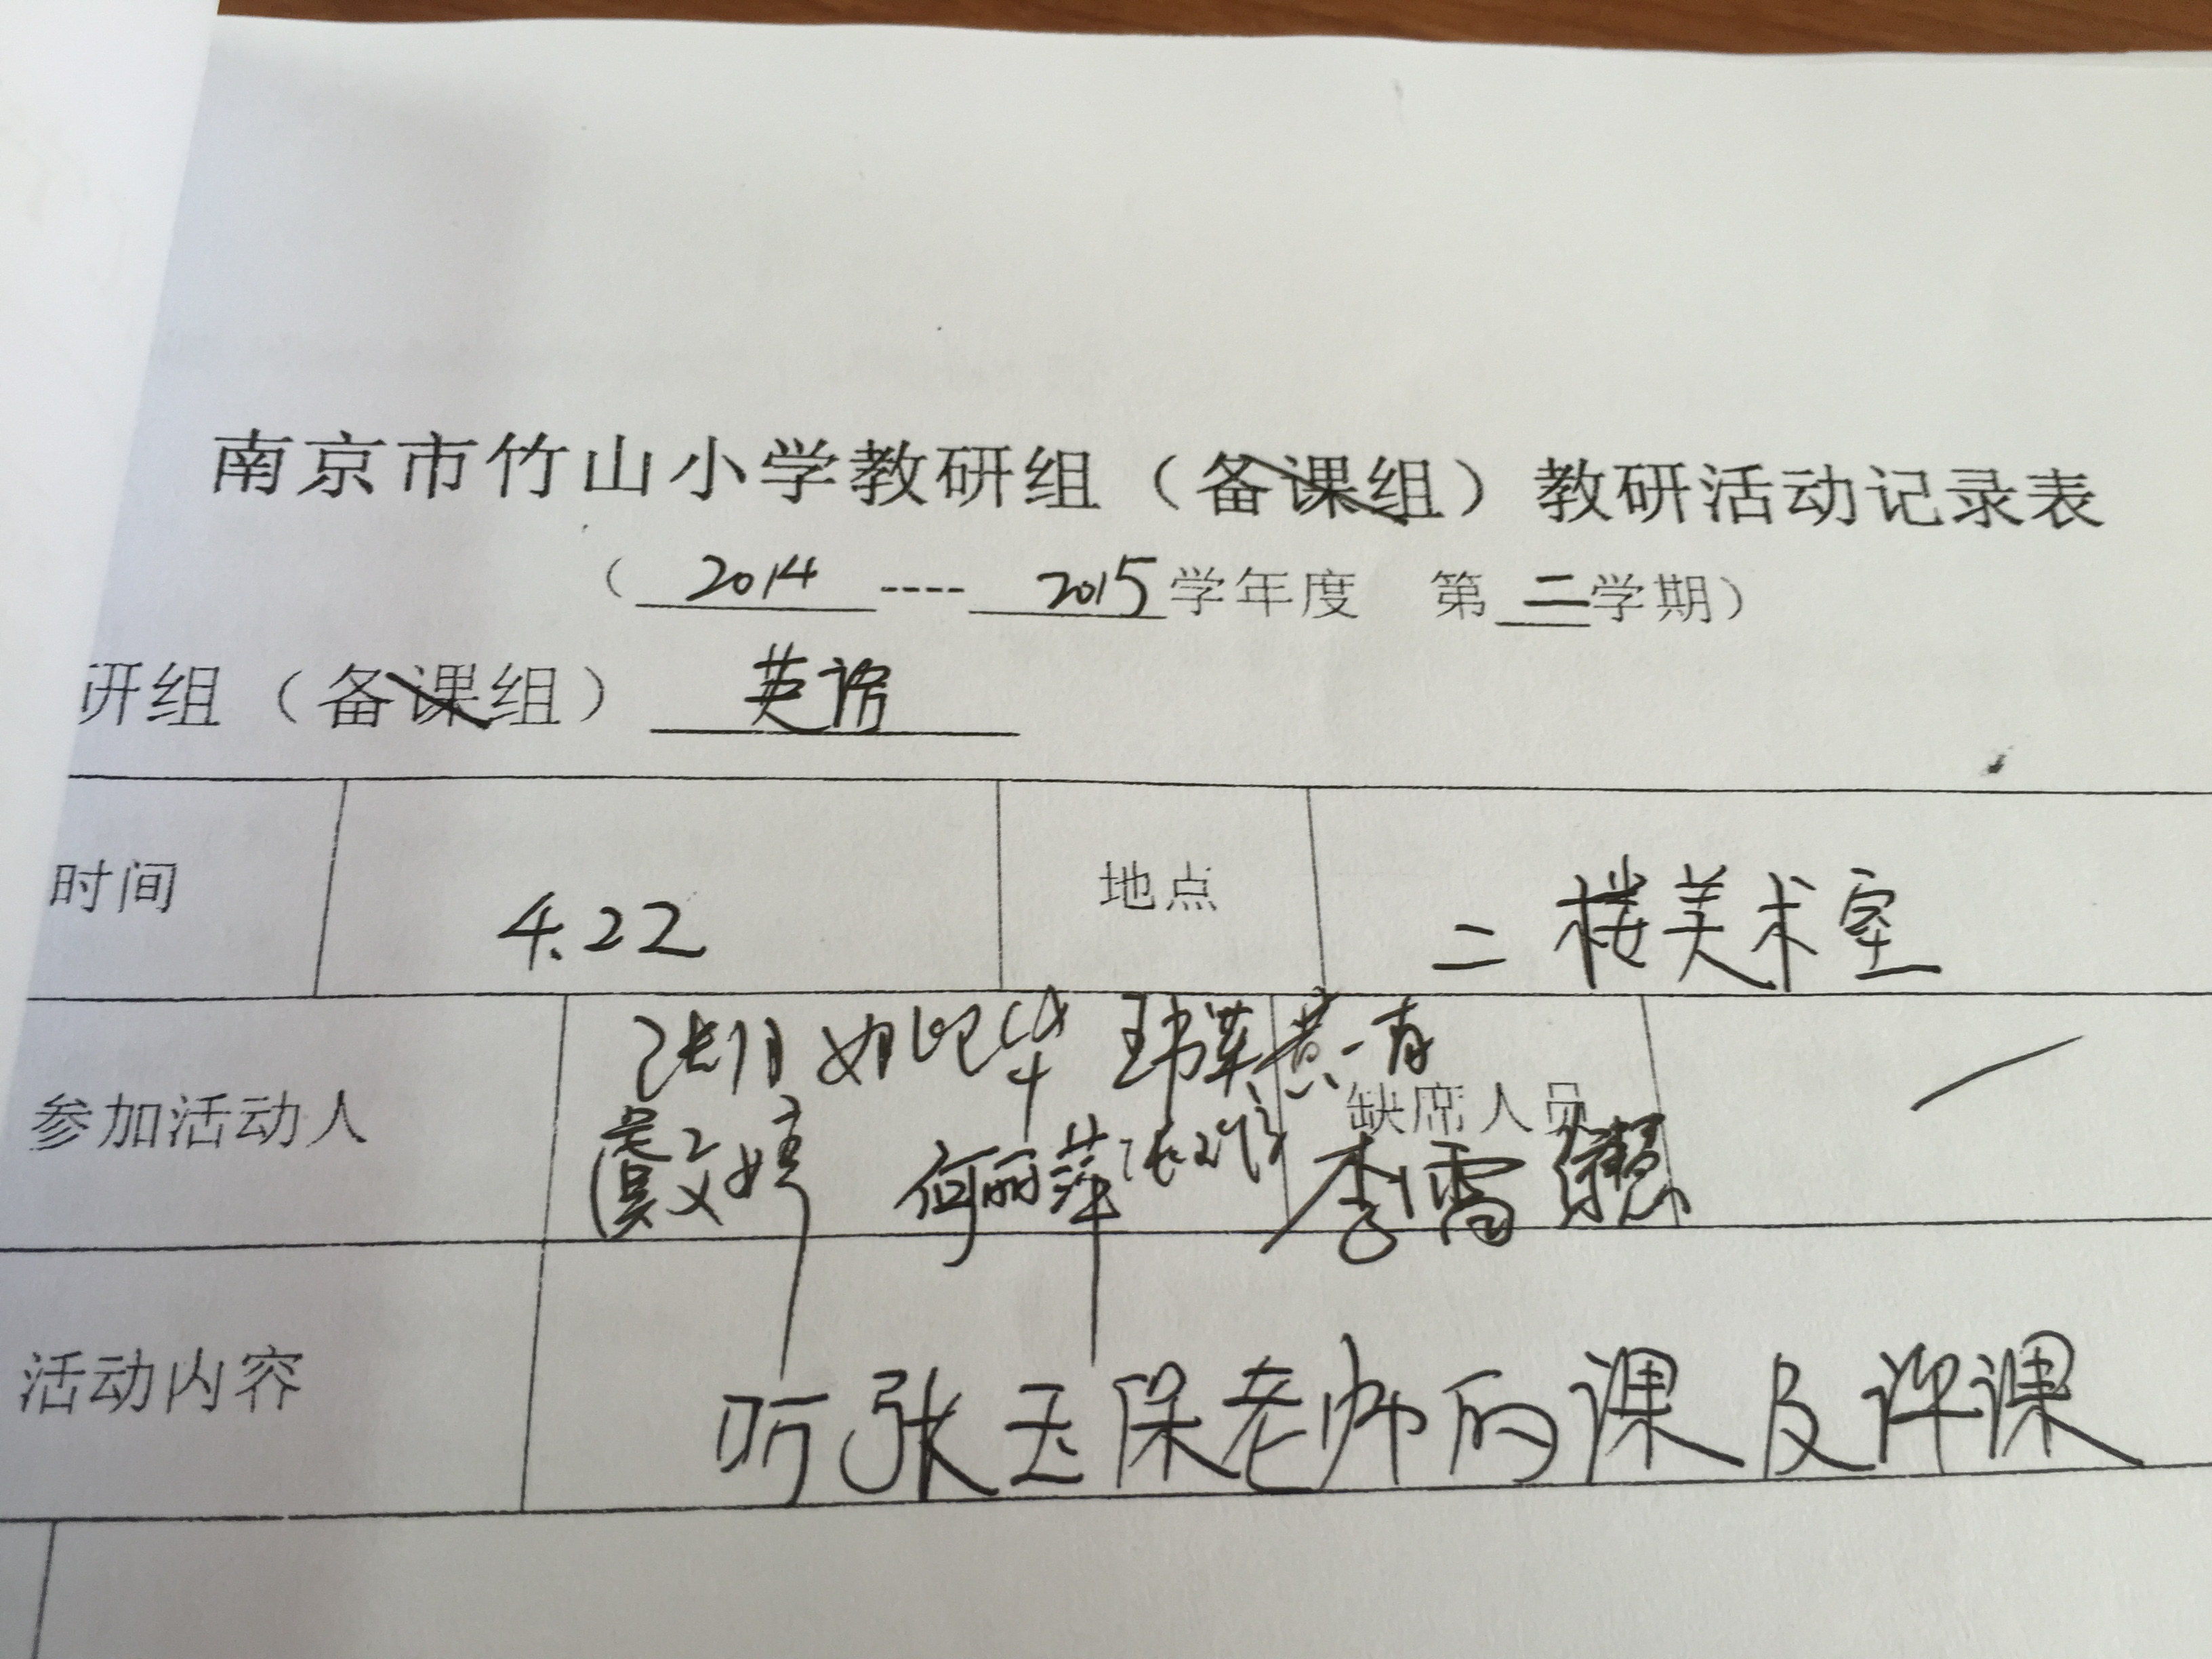 南京市竹山小学教研组（备课组）教研活动记录表
（2014----2015学年度 第二学期）
研组（备课组）英语
时间 4.22 地点 二楼美术室
参加活动人 黄一青 缺席人员
虞文婷 何丽萍 李雷
活动内容 听张玉保老师的课及评课